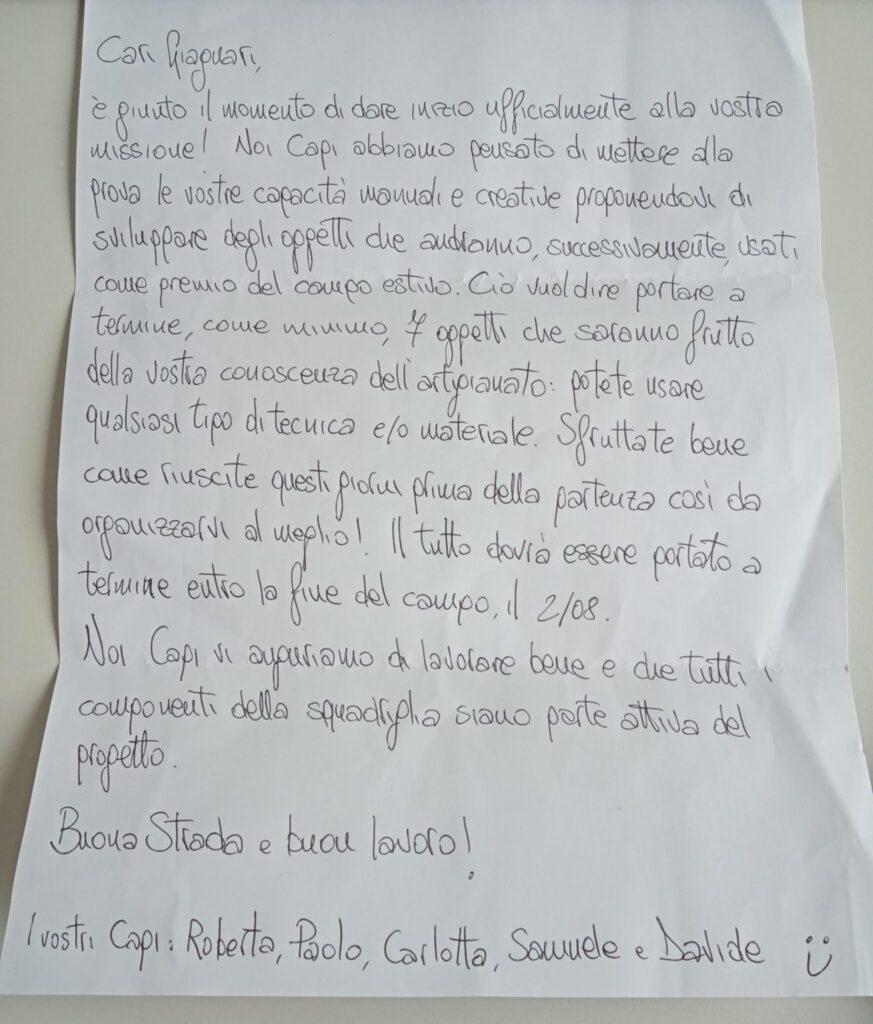 Cari Giaguari,
è giunto il momento di dare inizio ufficialmente alla vostra
missione! Noi Capi abbiamo pensato di mettere alla
prova le vostre capacità manuali e creative proponendovi di
sviluppare degli oggetti che andranno, successivamente, usati
come premio del campo estivo. Ciò vuol dire portare a
termine, come minimo, 7 oggetti che saranno frutto
della vostra conoscenza dell'artigianato: potete usare
qualsiasi tipo di tecnica e/o materiale. Sfruttate bene
come riuscite questi giorni prima della partenza così da
organizzarvi al meglio! Il tutto dovrà essere portato a
termine entro la fine del campo, il 2/08.
Noi Capi vi auguriamo di lavorare bene e che tutti i
componenti della squadriglia siano parte attiva del
progetto.
Buona Strada e buon lavoro!
I vostri Capi: Roberta, Paolo, Carlotta, Samuele e Davide